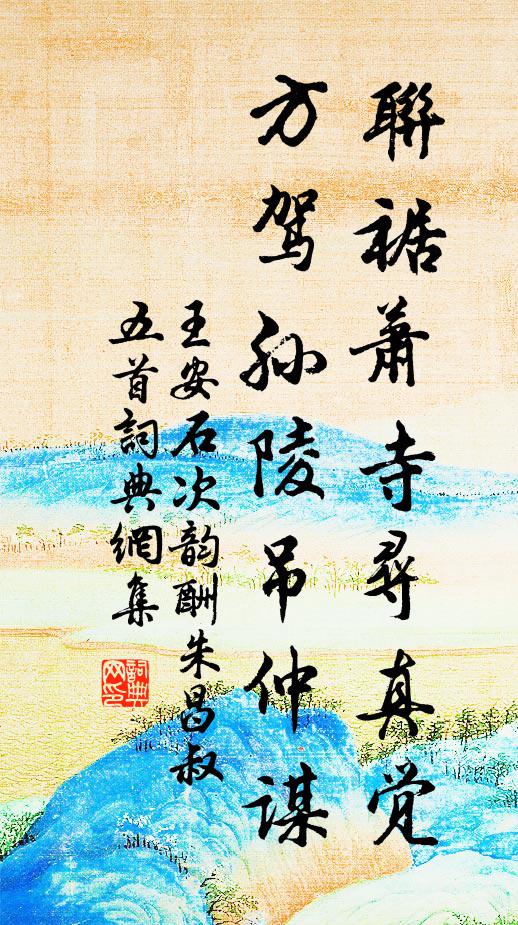 聯裾蕭寺尋真觉
方驾孙陵吊仲谋
王安石次韵酬朱昌叔
五首詞典網集
詞典网印